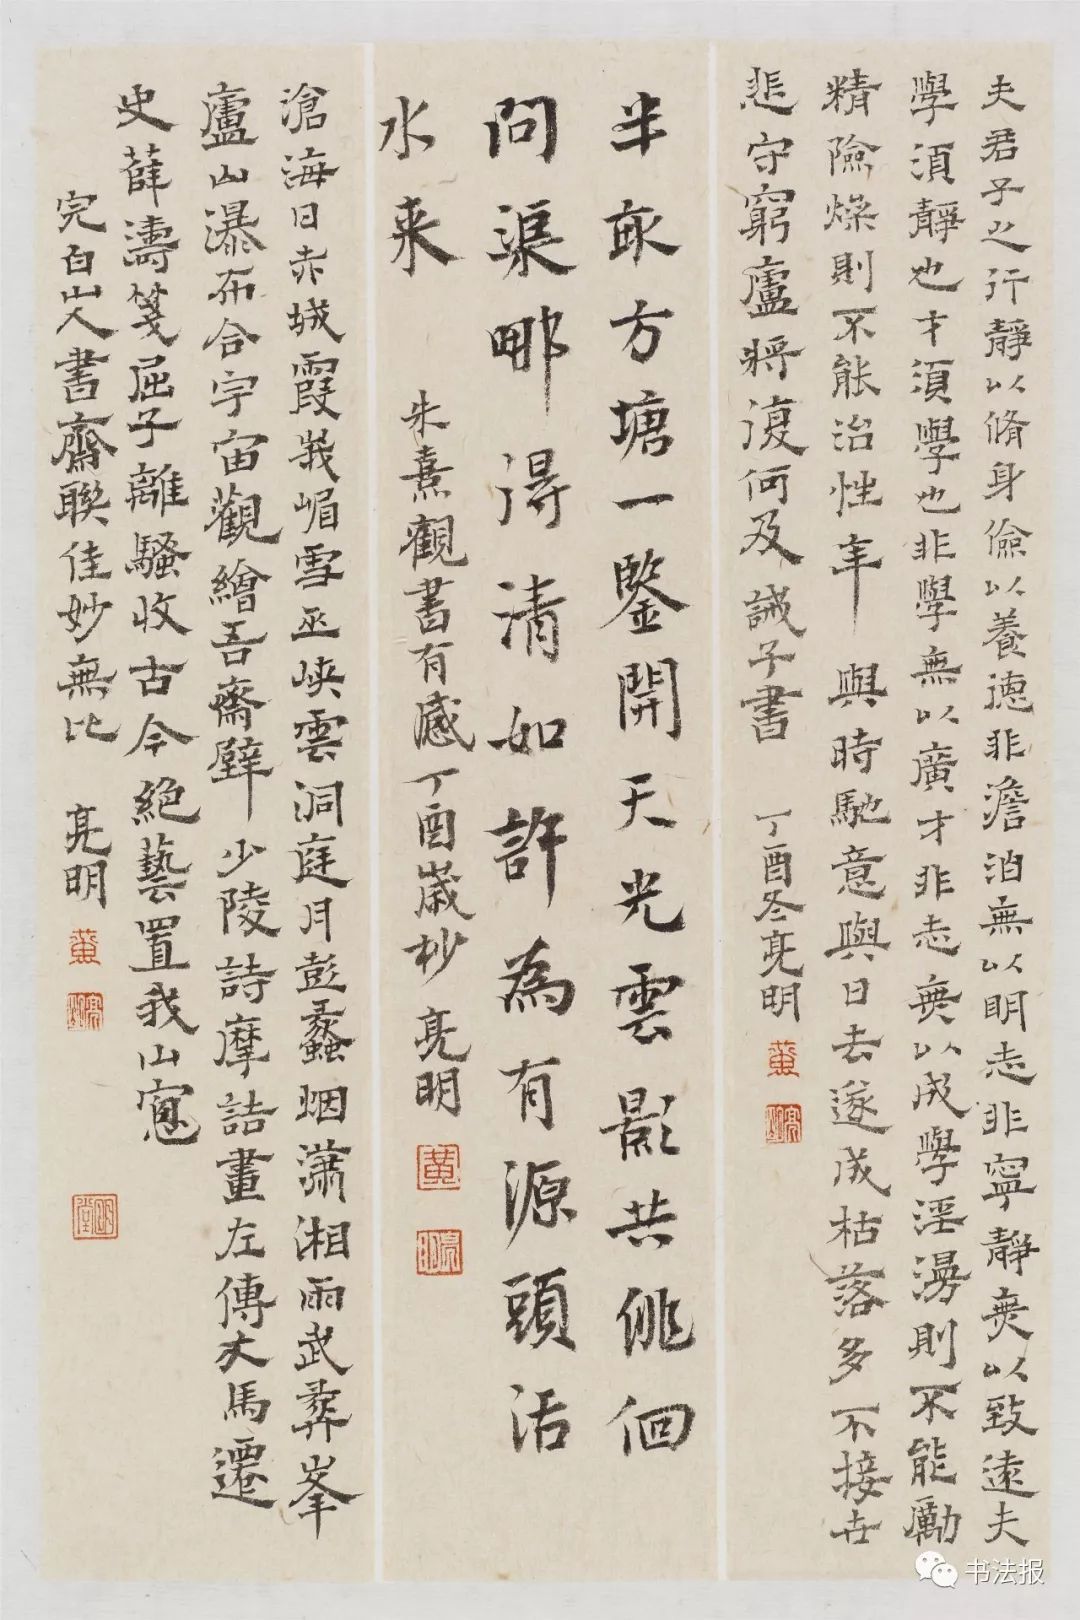 夫君子之行靜以脩身儉以養德非澹泊無以明志非寧靜無以致遠夫
學須靜也才須學也非學無以廣才非志無以成學淫漫則不能勵
精險燥則不能治性年與時馳意與日去遂成枯落多不接世
悲守窮廬將復何及誡子書 丁酉冬亮明
半畝方塘一鑒開天光雲影共徘徊
問渠哪得清如許為有源頭活
水来
朱熹觀書有感丁酉歲杪亮明
滄海日赤城霞峩嵋雪巫峽雲洞庭月彭蠡烟瀟湘雨武彝峯
廬山瀑布合宇宙觀繪吾齋壁少陵詩摩詰畫左傳文馬遷
史薛濤箋屈子離騷收古今絕藝置我山窗
完白山人書齋聯佳妙無比 亮明
书法报